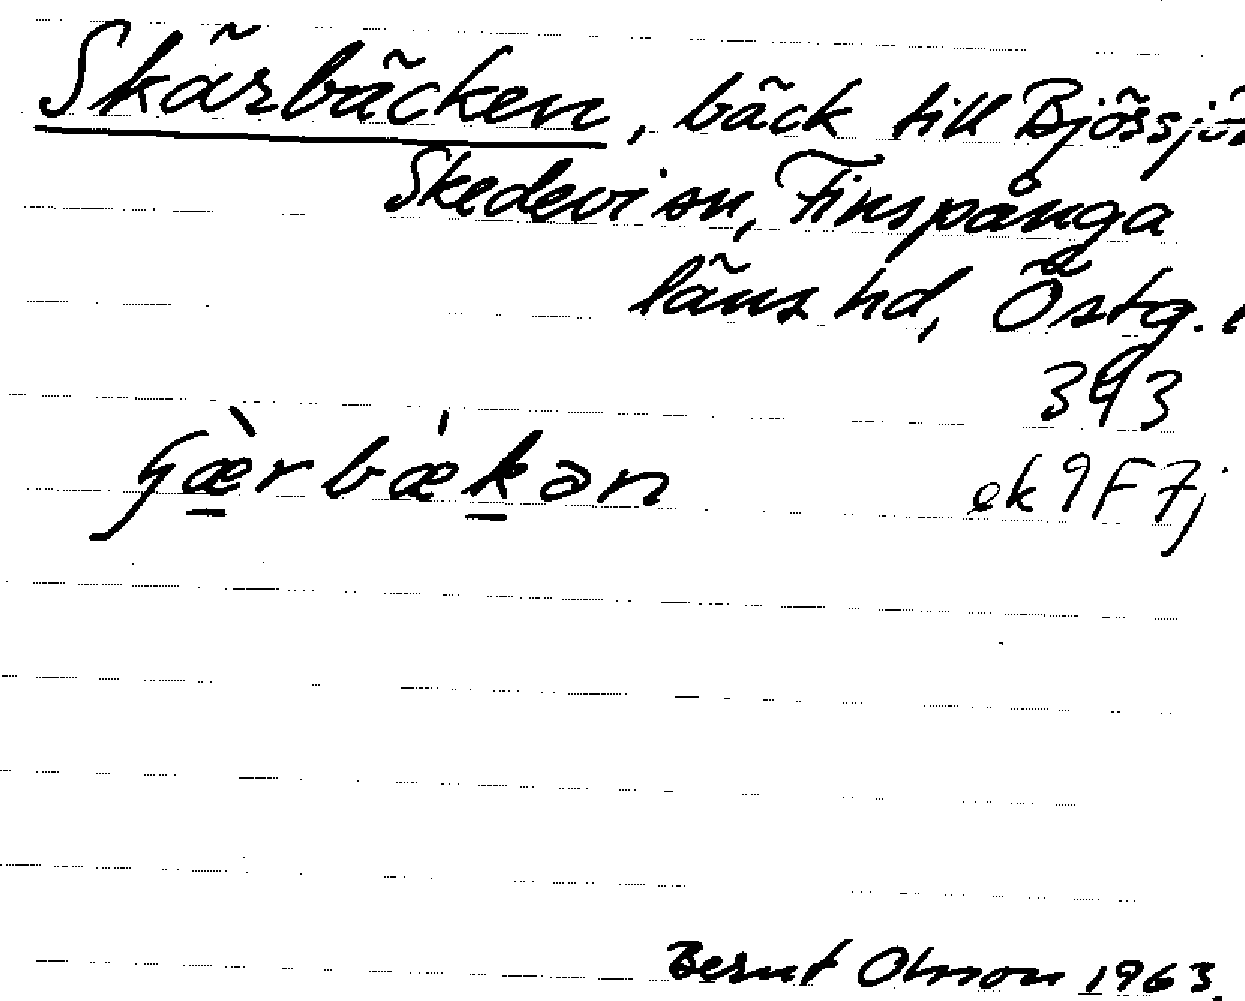 Skärbäcken, bäck till Björsjön
Skedevi sn, Finspånga
läns hd, Östg.
343
ek 9F7j
Bernt Olsson 1963.